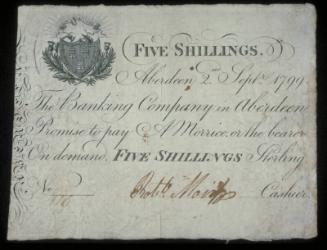 FIVE SHILLINGS.
Aberdeen 2nd Septr. 1799
The Banking Company in Aberdeen
Promise to pay A Morrice, or the bearer
On demand, FIVE SHILLINGS Sterling
No
Cashier.